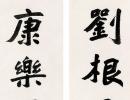 劉根
康樂